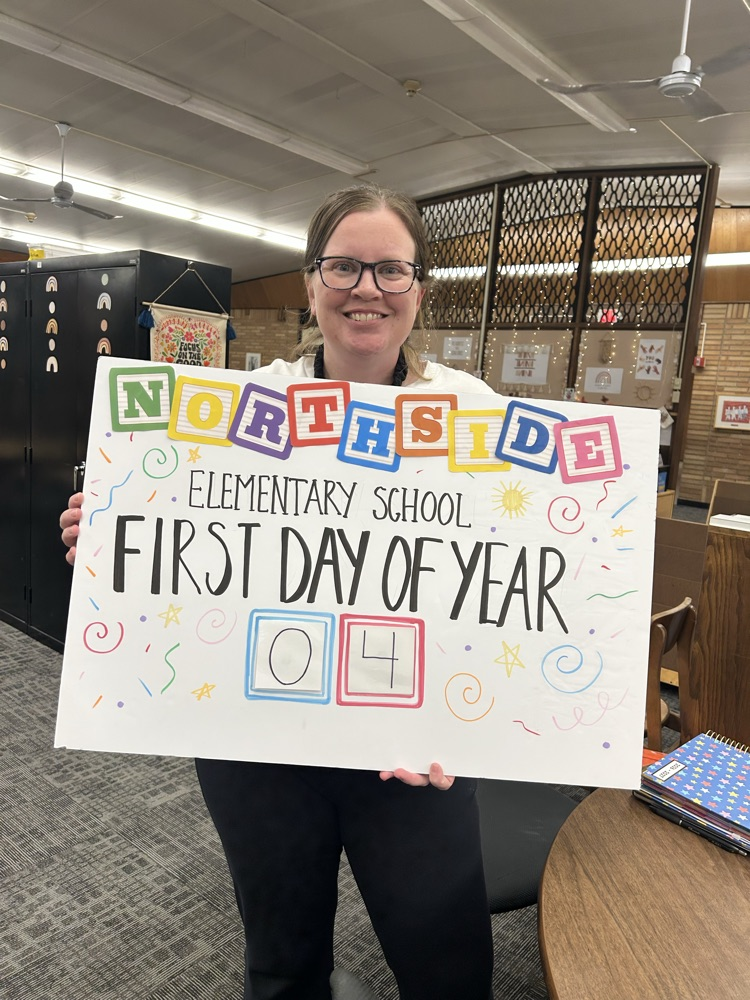 NORTHSIDE
ELEMENTARY SCHOOL
FIRST DAY OF YEAR
0 4
FOCUS
ON THE
GOOD